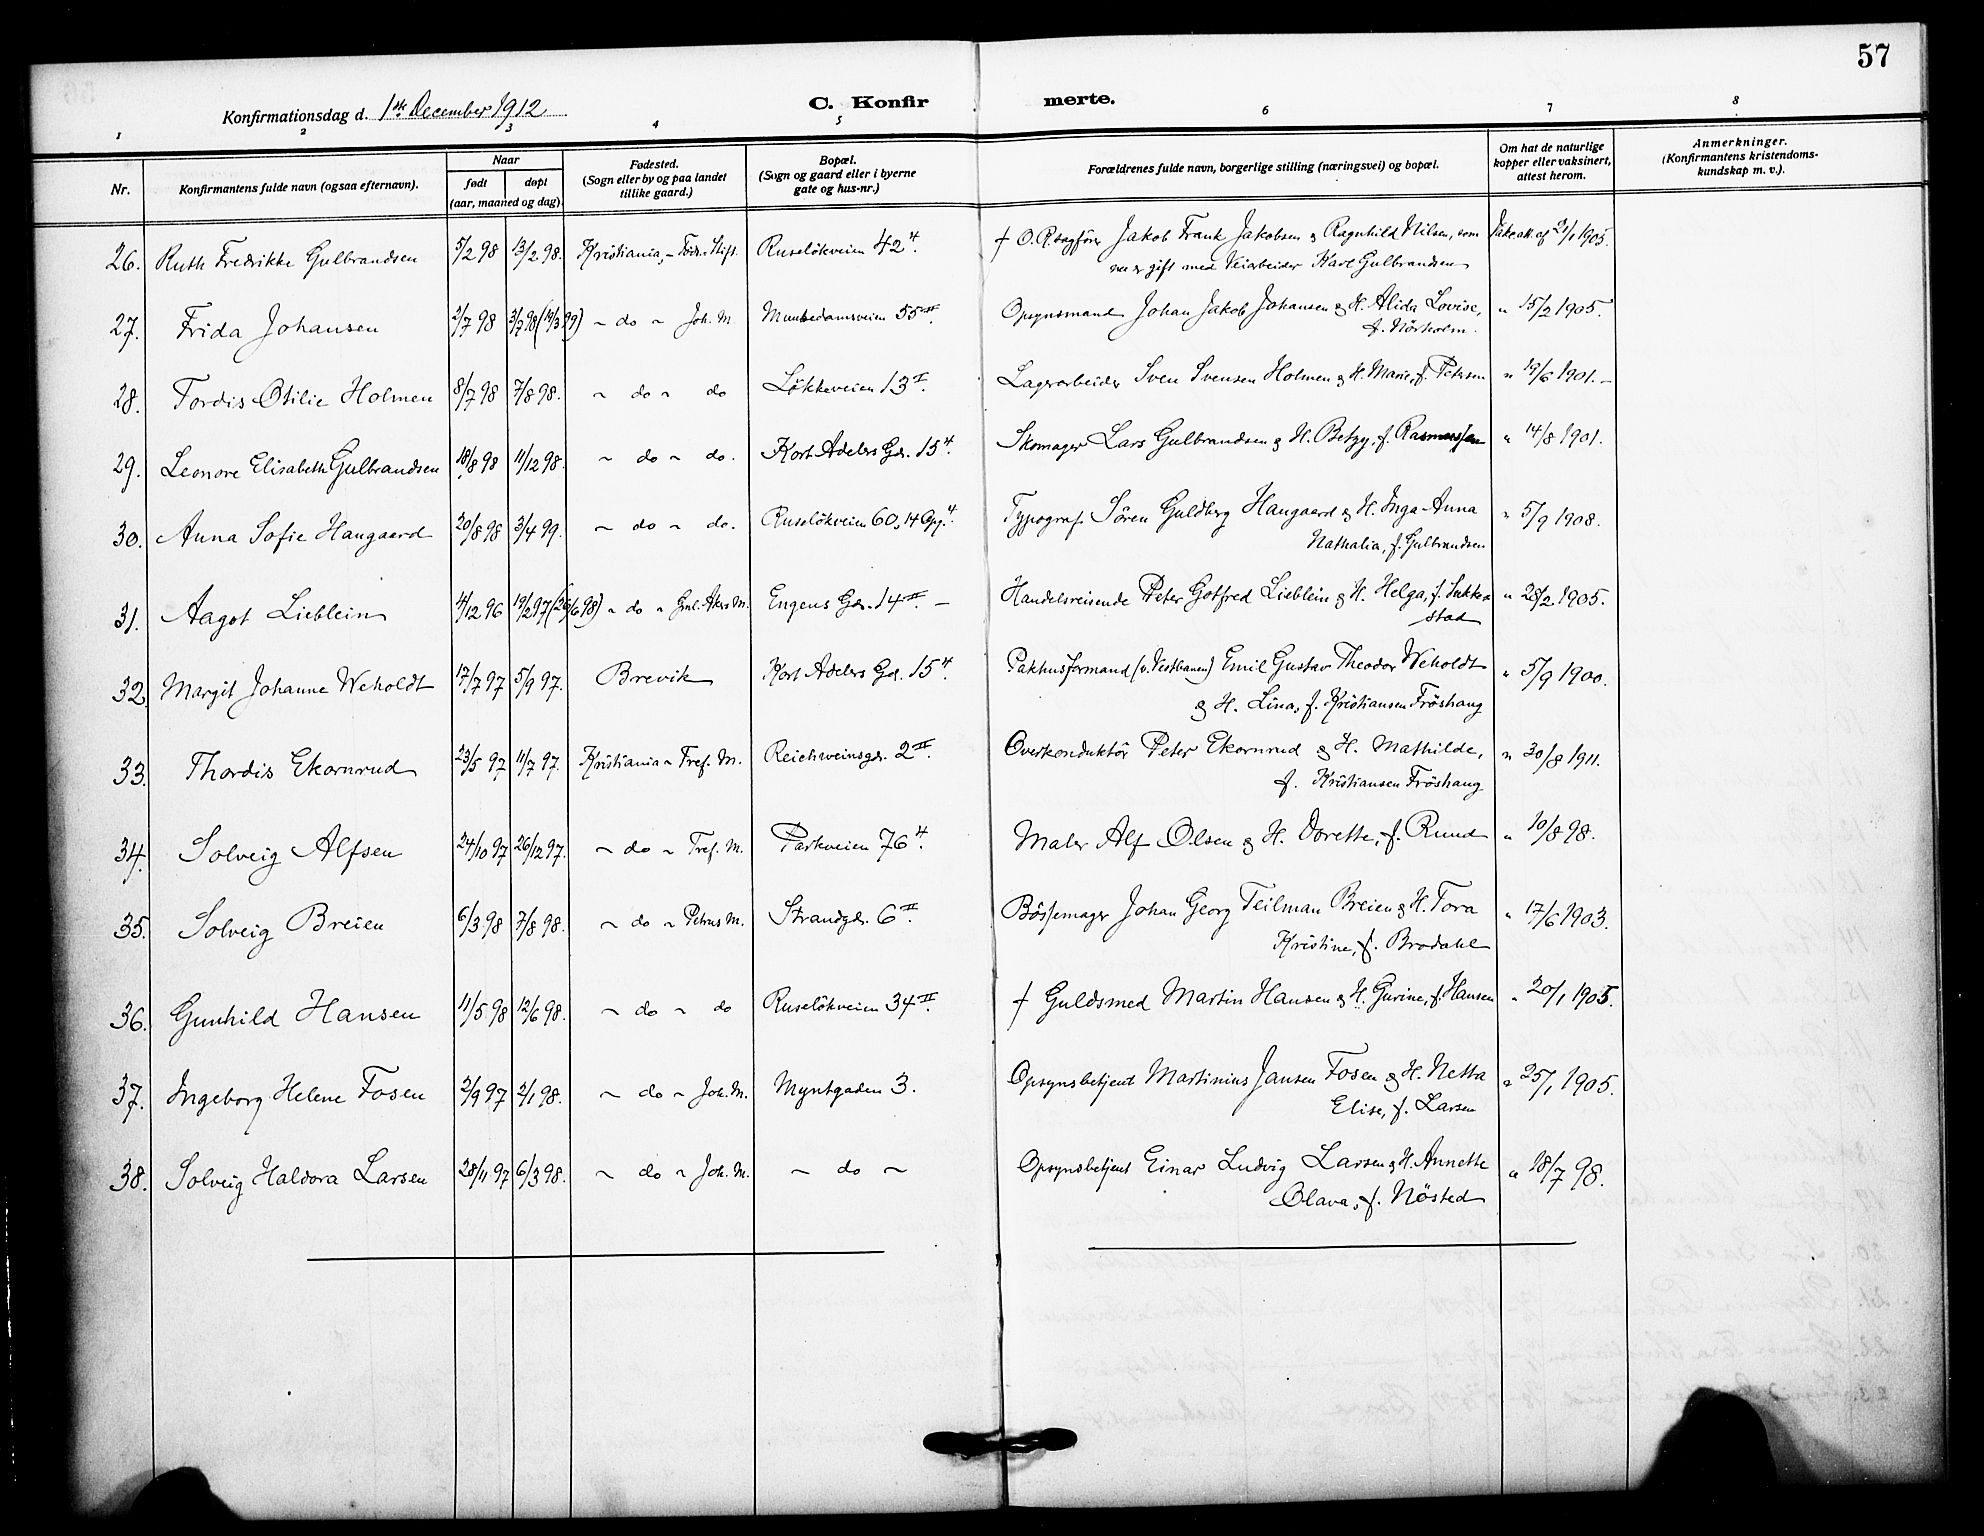 57
Konfirmationsdag d. 1ste December 1912
C. Konfirmerte.
1 2 3 4 5 6 7 8
Nr. Konfirmantens fulde navn (ogsaa efternavn). Naar født døpt (aar, maaned og dag). Fødested. (Sogn eller by og paa landet tillike gaard.) Bopæl. (Sogn og gaard eller i byerne gate og hus-nr.) Forældrenes fulde navn, borgerlige stilling (næringsvei) og bopæl. Om hat de naturlige kopper eller vaksinert, attest herom. Anmerkninger. (Konfirmantens kristendomskundskap m. v.).
26. Ruth Fredrikke Gulbrandsen 5/2 98 13/2 98. Kristiania, - Föd. Stift. Ruselökveien 42 4. † O.R.sagförer Jakob Frank Jakobsen & Ragnhild Nilsen, som 21/1 1905.
nu er gift med Veiarbeider Karl Gulbrandsen
27. Frida Johansen 2/7 98 3/7 98 (19/3 99) ~ do ~ Joh. M. Munkedamsveien 55 III. Opsynsmand Johan Jakob Johansen & H. Alida Lovise, " 15/2 1905.
f. Nörholm.
28. Tordis Otilie Holmen 8/7 98 7/8 98. ~ do ~ do Lökkeveien 13 I. Lagerarbeider Sven Svensen Holmen & H. Marie, f. Petersen " 19/6 1901. -
29. Leonore Elisabeth Gulbrandsen 18/8 98 11/12 98. ~ do ~ do. Kort Adelers Gd. 15 4. Skomager Lars Gulbrandsen & H. Betzy, f. Rasmussen " 14/8 1901.
30. Anna Sofie Haugaard 20/8 98 3/4 99. ~ do ~ do. Ruselökveien 60, 14 Opg. 4. Typograf Sören Guldberg Haugaard & H. Inga Anna " 5/9 1908.
Nathalia, f. Gulbrandsen
31. Aagot Lieblein 4/12 96 19/2 97 (26/6 98) ~ do ~ Gml. Akers M. Engens Gd. 14 II. - Handelsreisende Peter Gotfred Lieblein & H. Helga, f. Sukke- " 28/2 1905.
stad
32. Margit Johanne Weholdt 17/7 97 5/9 97. Brevik Kort Adelers Gd. 15 4. Pakhusformand (v. Vestbanen) Emil Gustav Theodor Weholdt " 5/9 1900.
& H. Lina, f. Kristiansen Fröshaug
33. Thordis Ekornrud 23/5 97 11/7 97. Kristiania ~ Tref. M. Reichweinsgd. 2 II. Overkonduktör Peter Ekornrud & H. Mathilde, " 30/8 1911.
f. Kristiansen Fröshaug
34. Solveig Alfsen 24/10 97 26/12 97. ~ do ~ Tref. M. Parkveien 76 4. Maler Alf Olsen & H. Dorette, f. Ruud " 10/8 98.
35. Solveig Breien 6/3 98 7/8 98. ~ do ~ Petrus M. Strandgd. 6 II. Bössemager Johan Georg Teilman Breien & H. Tora " 17/6 1903.
Kristine, f. Brodahl
36. Gunhild Hansen 11/5 98 12/6 98. ~ do ~ do Ruselökveien 34 II. † Guldsmed Martin Hansen & H. Gurine, f. Hansen " 20/1 1905.
37. Ingeborg Helene Fosen 2/9 97 2/1 98. ~ do ~ Joh. M. Myntgaden 3. Opsynsbetjent Martinius Jansen Fosen & H. Netta " 25/1 1905.
Elise, f. Larsen
38. Solveig Haldora Larsen 28/11 97 6/3 98. ~ do ~ Joh. M. ~ do ~ Opsynsbetjent Einar Ludvig Larsen & H. Annette " 18/7 98.
Olava, f. Nösted